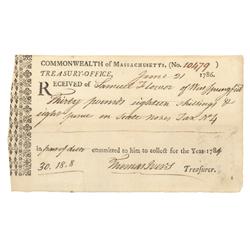 COMMONWEALTH OF MASSACHUSETTS, (No. 10479)
TREASURY-OFFICE, June 21 1786.
RECEIVED of Samuel Flower of West Springfield
Thirty pounds eighteen shillings &
eight pence in State notes Tax No 4
in part of those committed to him to collect for the Year 1784
30.18.8 Thomas Ivers Treasurer.